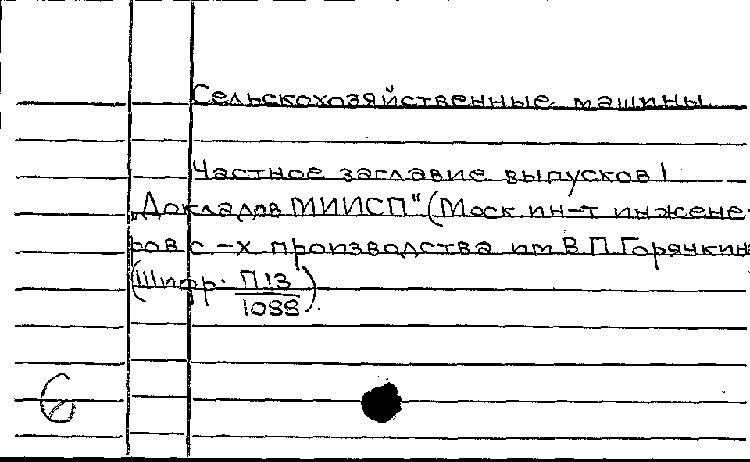 Сельскохозяйственные машины.
Частное заглавие выпусков!
„Докладов МИИСП" (Моск. ин-т инжене-
ров с-х производства им В.П. Горячкин
(Шифр. П13
1088).
6